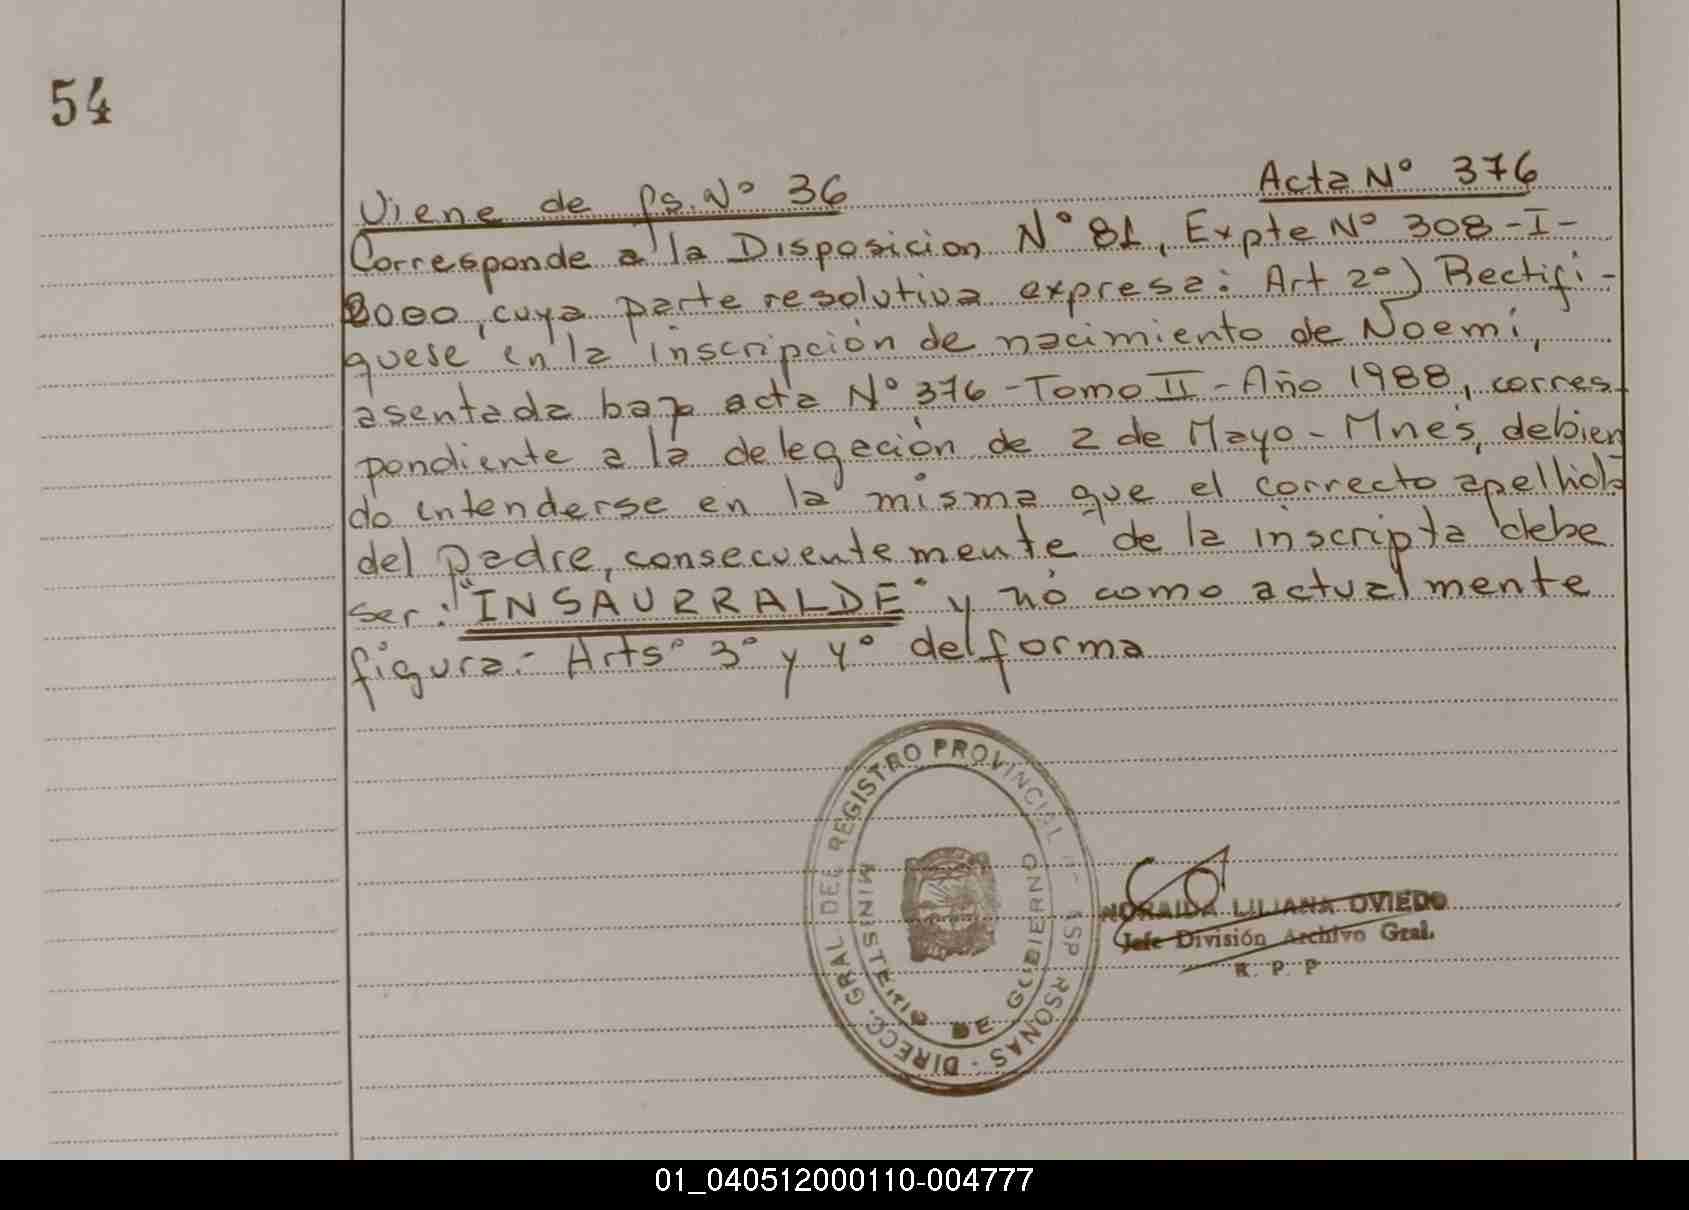 54
Viene de fs. Nº 36
Acta Nº 376
Corresponde a la Disposicion Nº 81, Expte Nº 308-I-
2000, cuya parte resolutiva expresa: Art 2º) Rectifi-
quese en la inscripción de nacimiento de Noemí,
asentada bajo acta Nº 376 - Tomo II - Año 1988, corres-
pondiente a la delegación de 2 de Mayo - Mnes, debien
do entenderse en la misma que el correcto apellido
del padre, consecuentemente de la inscripta debe
ser: "INSAURRALDE" y nó como actualmente
figura.- Artsº 3º y 4º del forma
DIRECC. GRAL DEL REGISTRO PROVINCIAL
MINISTERIO DE GOBIERNO
NORAIDA LILIANA OVIEDO
Jefe División Archivo Gral.
R. P. P
01_040512000110-004777